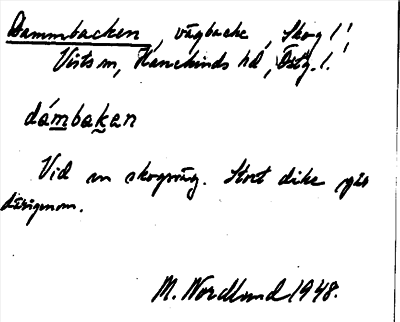 Dammbacken, vägbacke, Skog!!
V:ts sn, Hanekinds hd, Östg.!.
dámbakan
Vid en skogsväg. Stort dike går
därigenom.
M. Nordlund 1948.